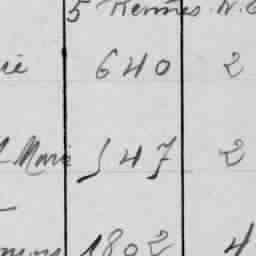 5 Rennes N.
rie 640 2
Marie 547 2
1802 4